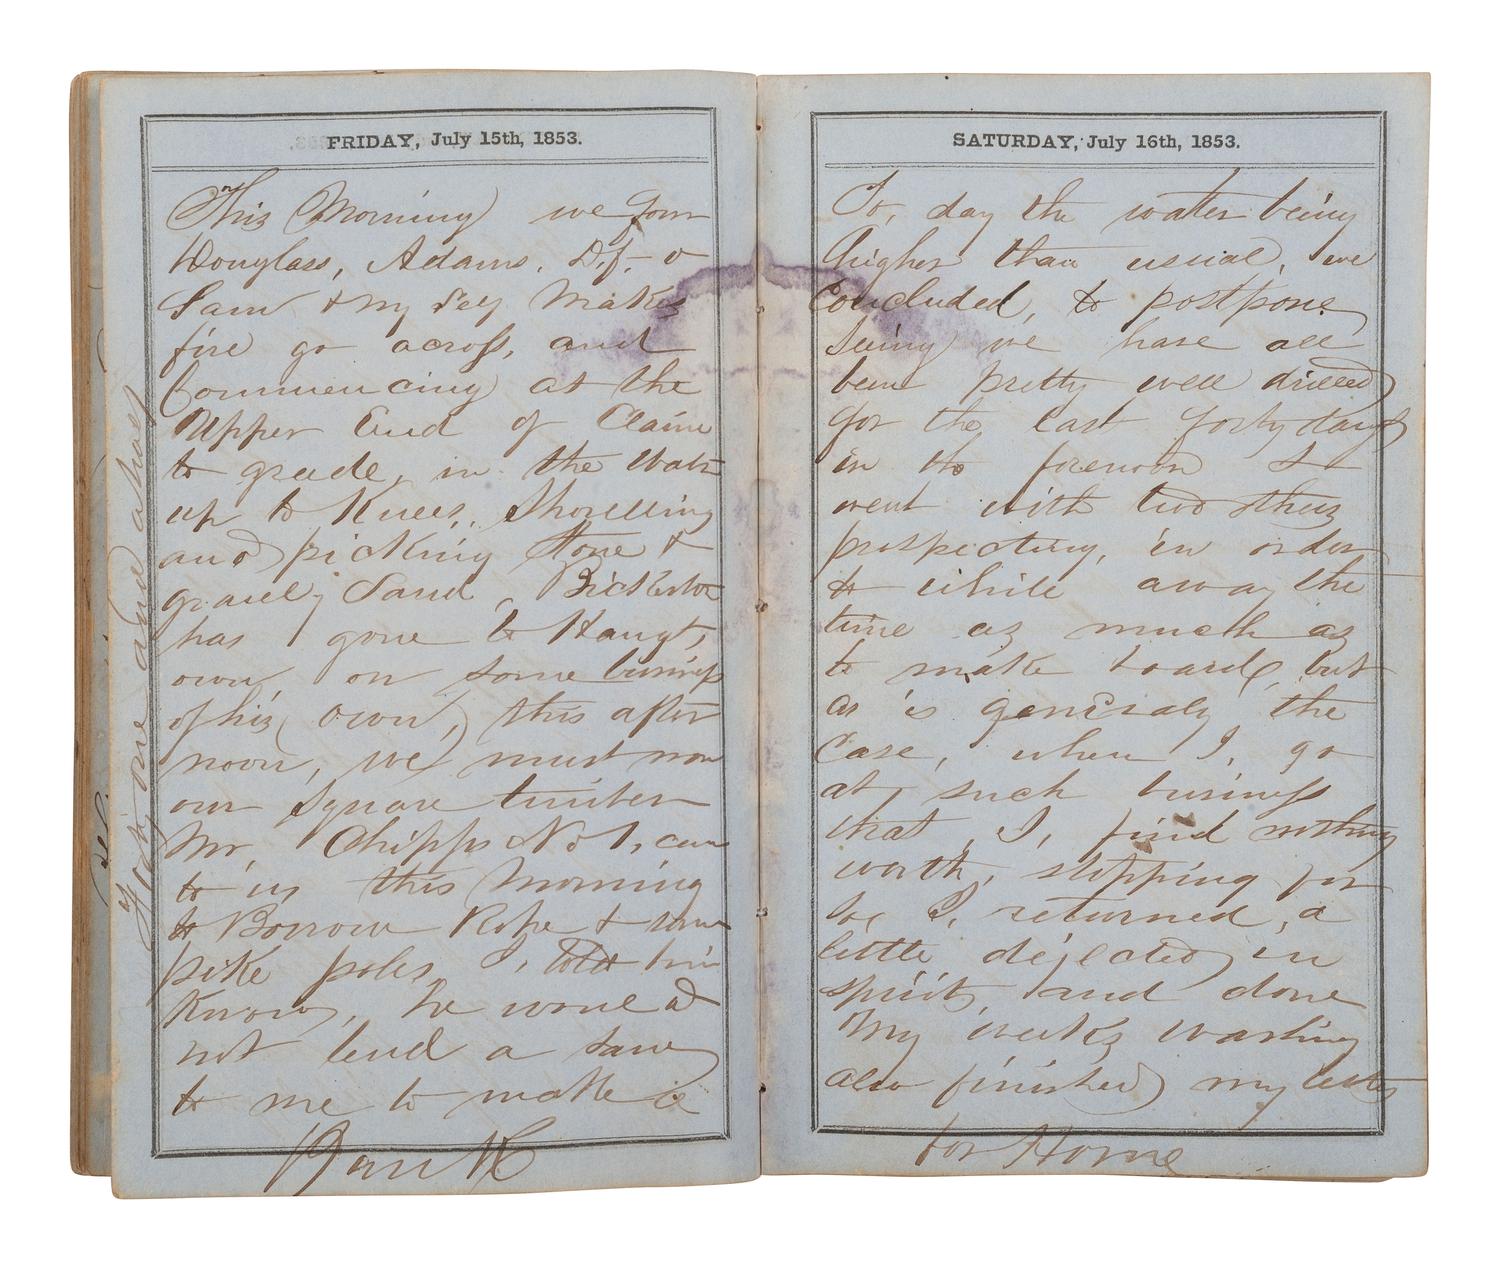 FRIDAY, July 15th, 1853.
This Morning we four
Douglass, Adams. D.f.
Sam & my self makes
five go across, and
Commencing at the
Upper End of Claim
to grade, in the Water
up to Knees, Shovelling
and picking Stone &
gravely Sand,
has gone to
own on some business
of his own, this after
noon, we must now
our Square timber
Mr, Chipps No 1, came
to us this Morning
to Borrow Rope & some
pike poles, I, told him
Know, he would
not lend a saw
to me to make a
one and
SATURDAY, July 16th, 1853.
To, day the water being
higher than usual, we
Concluded, to postpone
Seeing we have all
been pretty well drilled
for the last forty days
in the forenoon I
went with two others
prospecting, in order
to while away the
time as much as
to make board, but
as is generaly the
Case, when I, go
at such business
that, I, find nothing
worth, stopping for
so, I, returned, a
little dejected in
spirits, and done
My weeks washing
also finished my letters
for Home